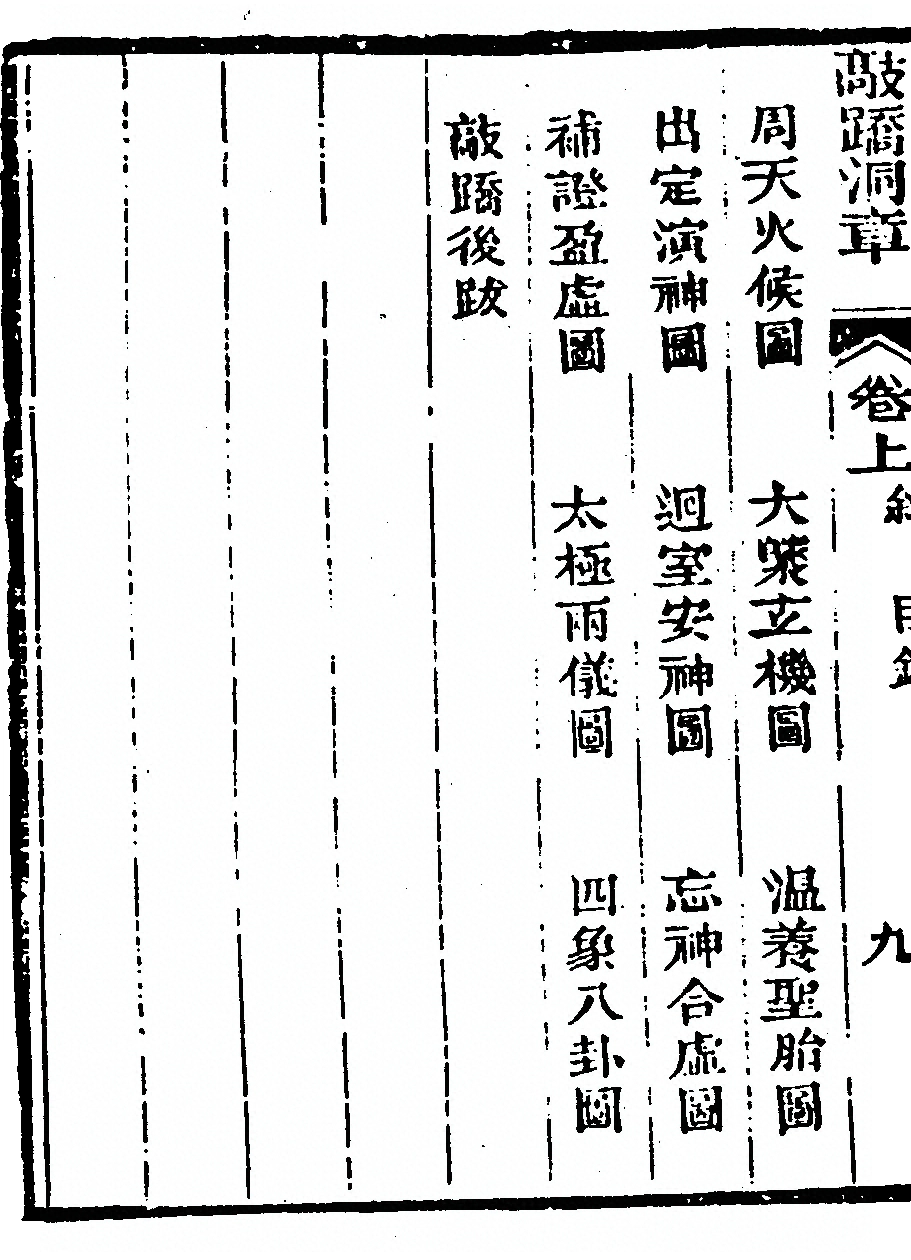 敲蹻洞章
卷上
目錄
九
周天火候圖 大藥玄機圖 温養聖胎圖
出定演神圖 迴室安神圖 忘神合虛圖
補證盈虛圖 太極兩儀圖 四象八卦圖
敲蹻後跋